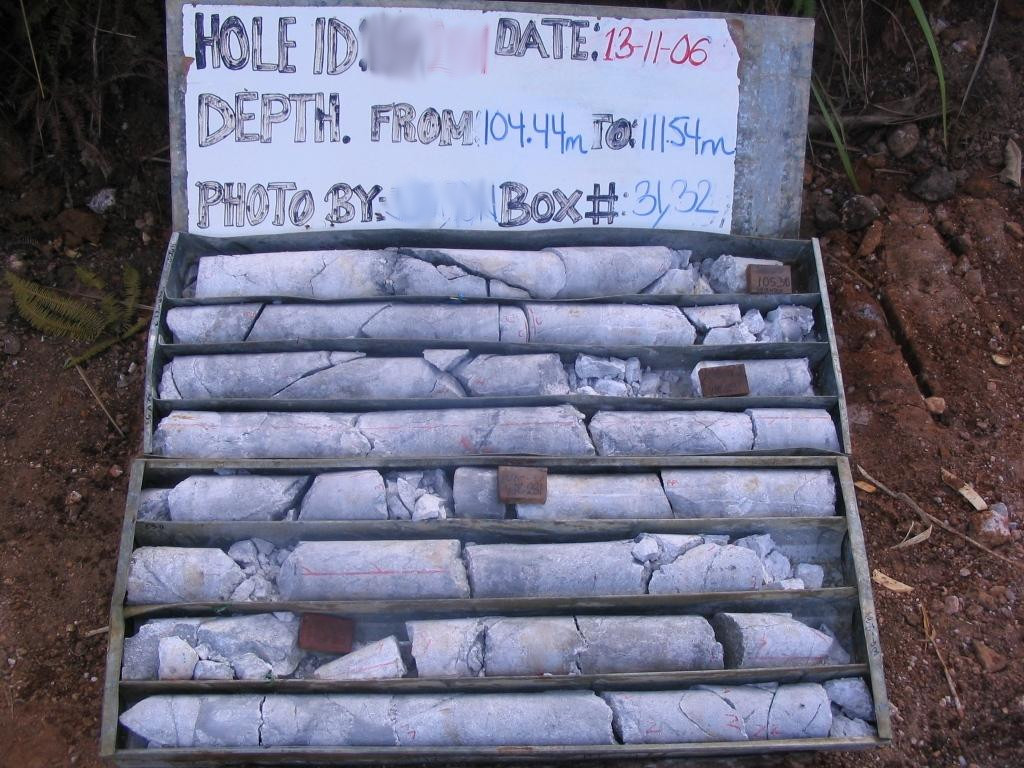 HOLE ID: DATE: 13-11-06
DEPTH. FROM: 104.44m TO: 111.54m
PHOTO BY: BOX#: 31,32